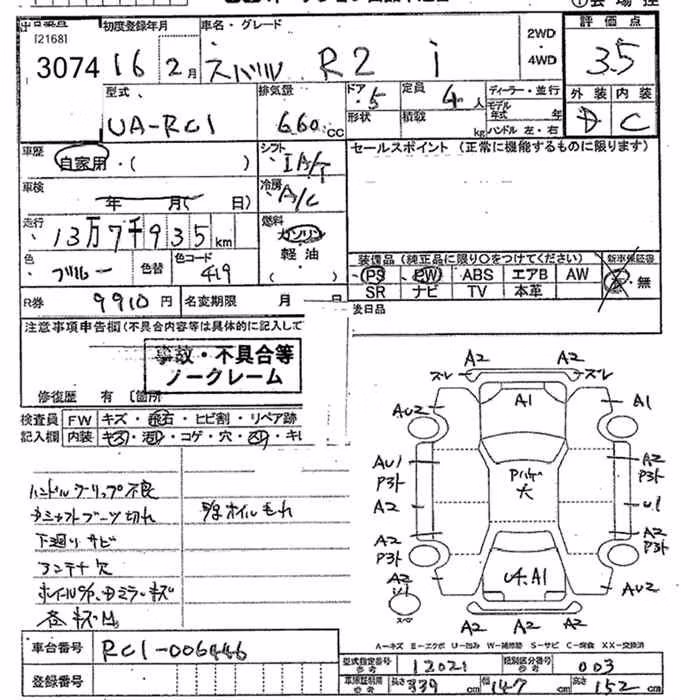 [2168]
初度登録年月
車名・グレード
2WD
・
4WD
評価点
3074
16 2月
スバル R2 i
3.5
型式
排気量
ドア
定員
ディーラー・並行
外装 内装
UA-RC1
660 CC
・5
4 人
モデル
年式 年
形状
積載
kg
ハンドル 左・右
D C
車歴
自家用・( )
シフト
IA/T
セールスポイント (正常に機能するものに限ります)
車検
年 月( 日)
冷房
A/C
走行
13万7千935km
燃料
ガソリン
軽油
( )
色
ブルー
色替
色コード
419
装備品 (純正品に限り○をつけてください)
新車保証書
・PS ・PW ABS エアB AW
SR ナビ TV 本革
有・無
R券
9910円
名変期限 月 日
後日品
注意事項申告欄(不具合内容等は具体的に記入して
事故・不具合等
ノークレーム
修復歴 有 [箇所
検査員
記入欄
FW キズ・飛石・ヒビ割・リペア跡
内装 キズ・汚れ・コゲ・穴・スリ・キレ
ハンドルグリップ不良
タシャフトブーツ切れ
下廻りサビ
アンテナ欠
各キズ
オイルもれ
A2 A2
ズレ ズレ
AU2 A1 A1
AU1 A2
P3ト P3ト
大
A2 U1
A2 A2
P3ト P3ト
A2 U4.A1 AU2
U1
スペア
A2 A2 A2
A-キズ E-エクボ U-凹み W-補修跡 S-サビ C-腐食 XX-交換済
車台番号
RC1-006446
登録番号
型式指定番号
参考
12021
類別区分番号
参考
003
車庫証明用
参考
長さ 339 cm 幅 147 cm 高さ 152 cm